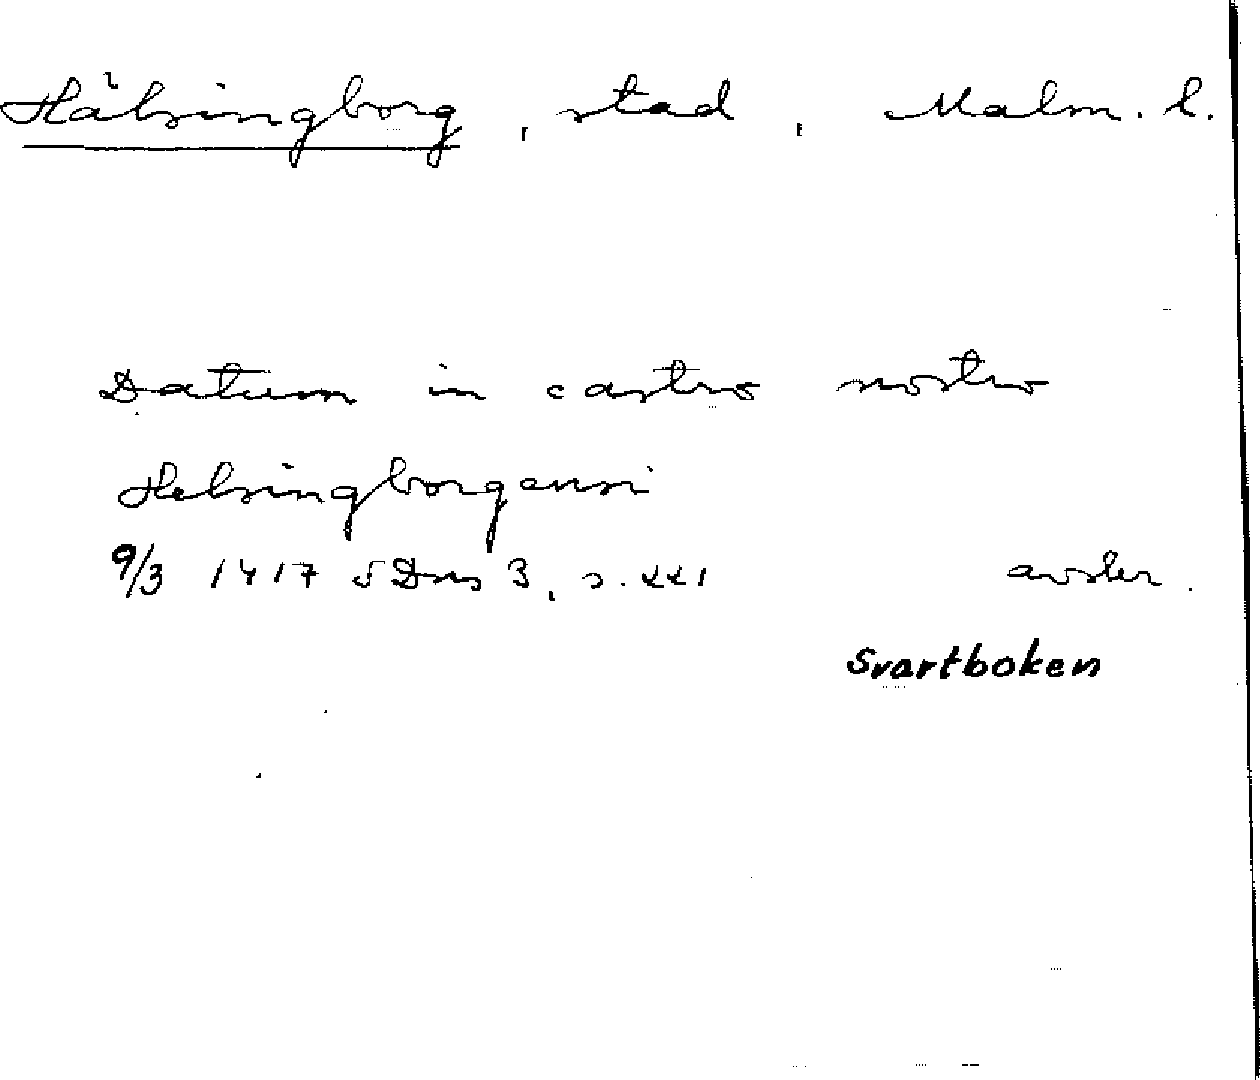 Hälsingborg, stad, Malm. l.
Datum in castro nostro
Helsingborgensi
9/3 1417 SDns 3, s. 221
avskr.
Svartboken